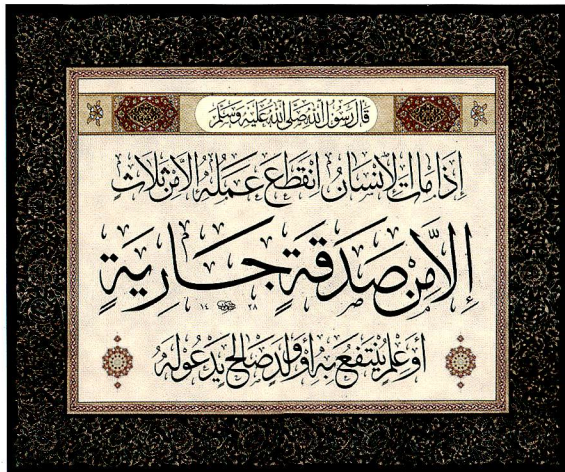 قَالَ رَسُولُ اللهِ صَلَّى اللهُ عَلَيْهِ وَسَلَّمَ
إِذَا مَاتَ الْإِنْسَانُ انْقَطَعَ عَمَلُهُ إِلَّا مِنْ ثَلَاثٍ
إِلَّا مِنْ صَدَقَةٍ جَارِيَةٍ
١٤ ٢٨
أَوْ عِلْمٍ يُنْتَفَعُ بِهِ أَوْ وَلَدٍ صَالِحٍ يَدْعُو لَهُ